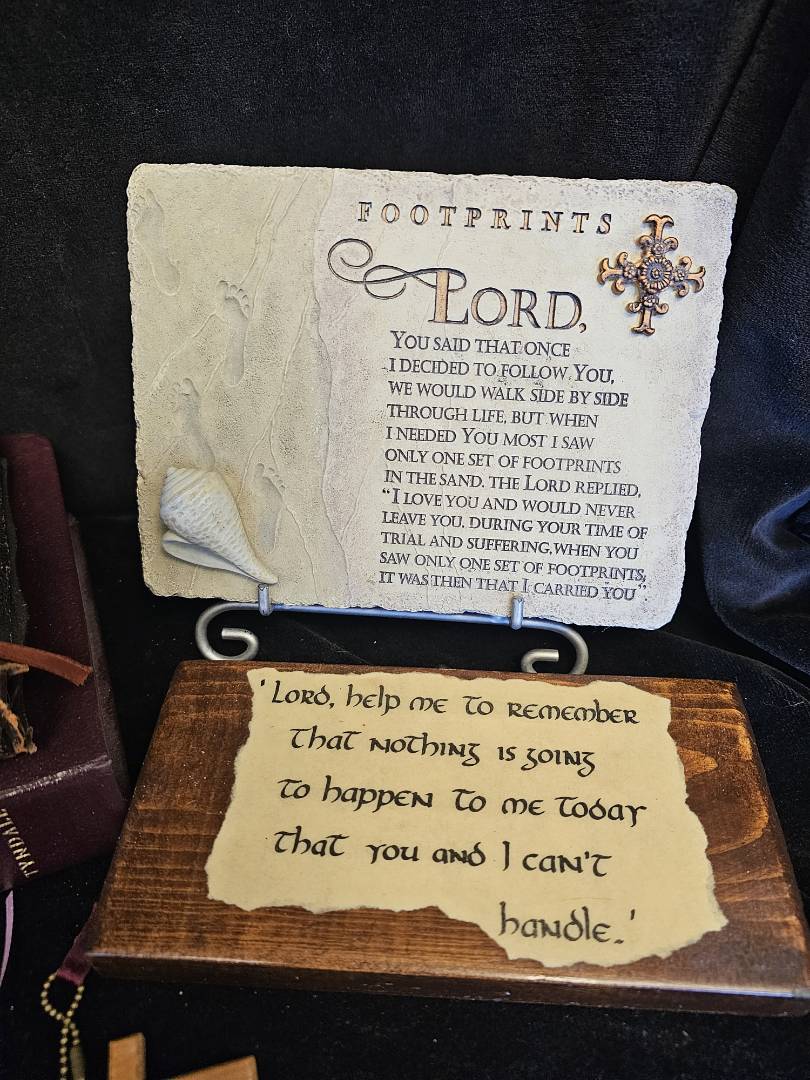 FOOTPRINTS
LORD,
YOU SAID THAT ONCE
I DECIDED TO FOLLOW YOU,
WE WOULD WALK SIDE BY SIDE
THROUGH LIFE, BUT WHEN
I NEEDED YOU MOST I SAW
ONLY ONE SET OF FOOTPRINTS
IN THE SAND. THE LORD REPLIED,
“I LOVE YOU AND WOULD NEVER
LEAVE YOU. DURING YOUR TIME OF
TRIAL AND SUFFERING, WHEN YOU
SAW ONLY ONE SET OF FOOTPRINTS,
IT WAS THEN THAT I CARRIED YOU”.
'Lord, help me to remember
that nothing is going
to happen to me today
that you and I can't
handle.'
TYNDALE